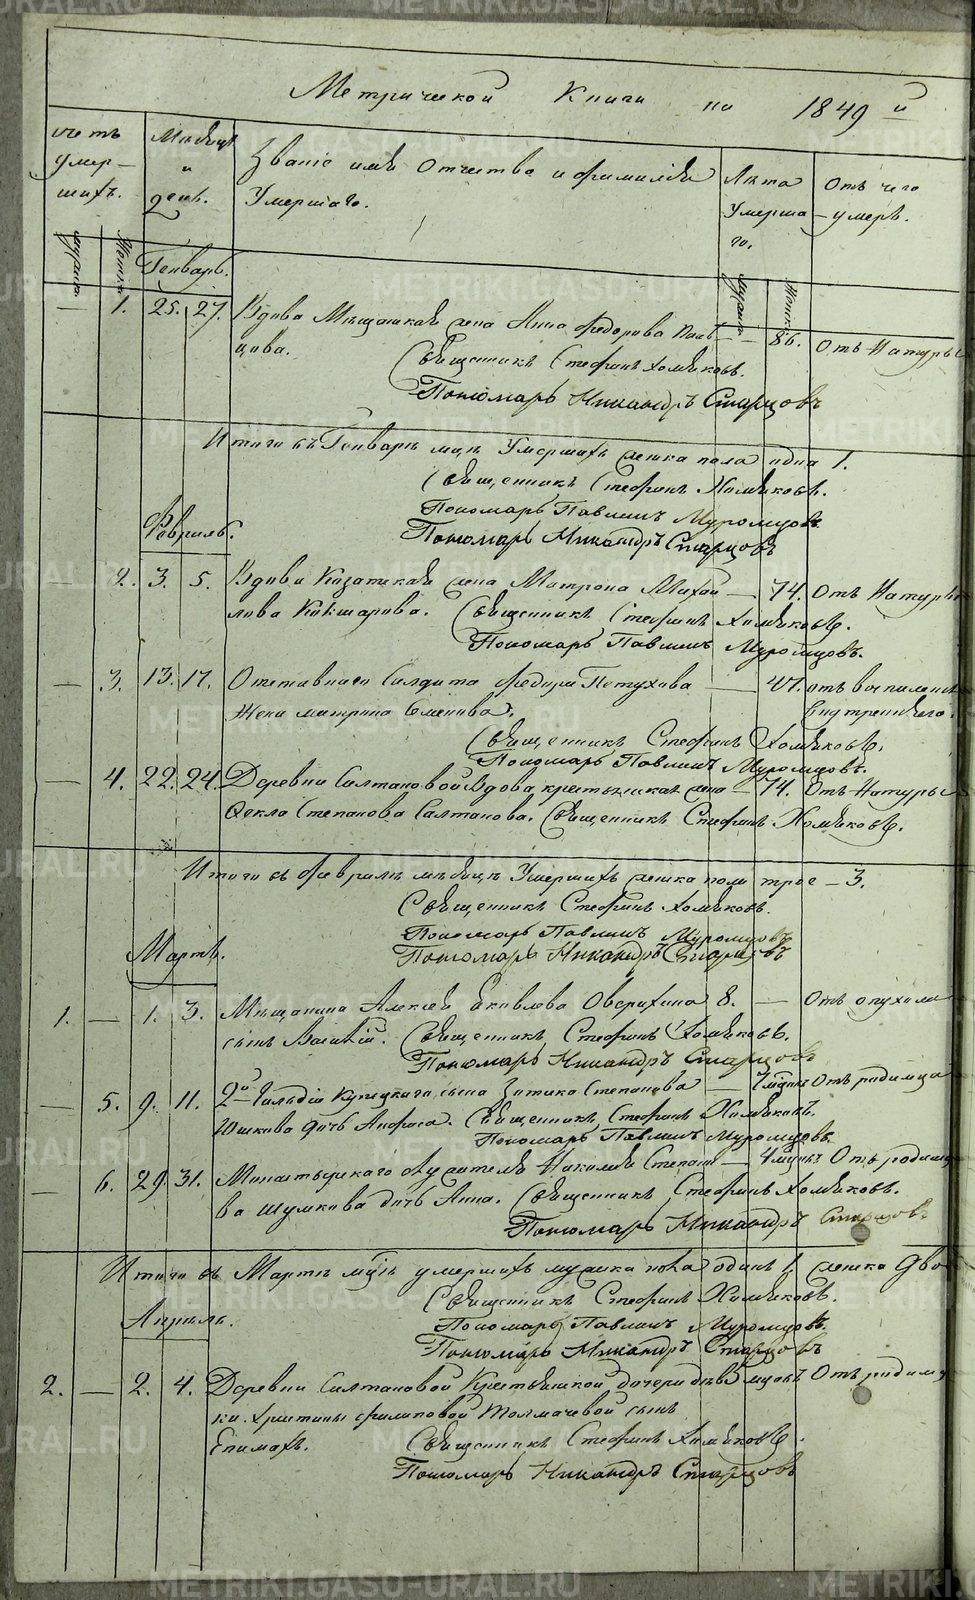 Метрической Книги на 1849 й
счетъ умер-шихъ.
Мѣсяцъ и день.
Званіе имя отчество и фамилія Умершаго.
Лѣта Умерша го.
Отъ чего умеръ.
Генварь.
— 1. 25. 27. Вдова Мѣщанская жена Анна Федорова — 86. Отъ Натуры
цова. Священникъ Стефанъ Хомяковъ.
Пономарь Никандръ Старцовъ
Итого въ Генварѣ мцѣ Умершихъ женска пола одна 1.
Священникъ Стефанъ Хомяковъ.
Пономарь Павлинъ Муромцовъ
Пономарь Никандръ Старцовъ
Февраль.
— 2. 3. 5. Вдова Казатская жена Матрона Михай — 74. Отъ Натуры
лова Кокшарова. Священникъ Стефанъ Хомяковъ.
Пономарь Павлинъ Муромцовъ.
— 3. 13. 17. Отставнаго Салдата Федора Петухова — 47. отъ воспаленія
Жена матрона Семенова. внутренняго.
Священникъ Стефанъ Хомяковъ.
Пономарь Павлинъ Муромцовъ.
— 4. 22. 24. Деревни Салтановой Вдова крестьянская жена — 74. Отъ Натуры
Фекла Степанова Салтанова. Священникъ Стефанъ Хомяковъ.
Итого въ Февралѣ мѣсяцѣ Умершихъ женска пола трое — 3.
Священникъ Стефанъ Хомяковъ.
Пономарь Павлинъ Муромцовъ
Пономарь Никандръ Старцовъ
Мартъ.
1. — 1. 3. Мѣщанина Алексея Яковлева Оверихина 8. — Отъ опухоли
сынъ Василій. Священникъ Стефанъ Хомяковъ.
Пономарь Никандръ Старцовъ
— 5. 9. 11. 2й Гильдіи Купецкаго сына Степанова — Отъ родимца
Юшкова дочь Анфиса. Священникъ Стефанъ Хомяковъ.
Пономарь Павлинъ Муромцовъ.
— 6. 29. 31. служителя Николая Степано — Отъ родимца
ва Шумкова дочь Анна. Священникъ Стефанъ Хомяковъ.
Пономарь Никандръ Старцовъ
Итого въ Мартѣ мцѣ умершихъ мужска пола одинъ 1, женска две
Священникъ Стефанъ Хомяковъ.
Пономарь Павлинъ Муромцовъ.
Пономарь Никандръ Старцовъ
Апрель.
2. — 2. 4. Деревни Салтановой Крестьянской дочери дѣв Отъ родимц
ки Христины Филиповой Толмачевой сынъ
Епимахъ. Священникъ Стефанъ Хомяковъ.
Пономарь Никандръ Старцовъ
METRIKI.GASO-URAL.RU